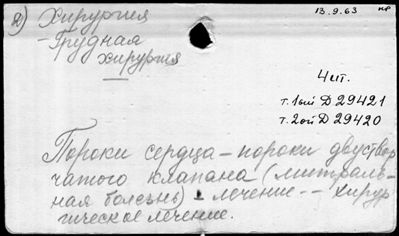 я) Хирургия
13.9.63 нр
- Грудная
хирургия
Чит.
т.1ый Д 29421
т.2ой Д 29420
Пороки сердца – пороки двуствор
чатого клапана (митраль-
ная болезнь) – лечение -- хирур
гическое лечение.